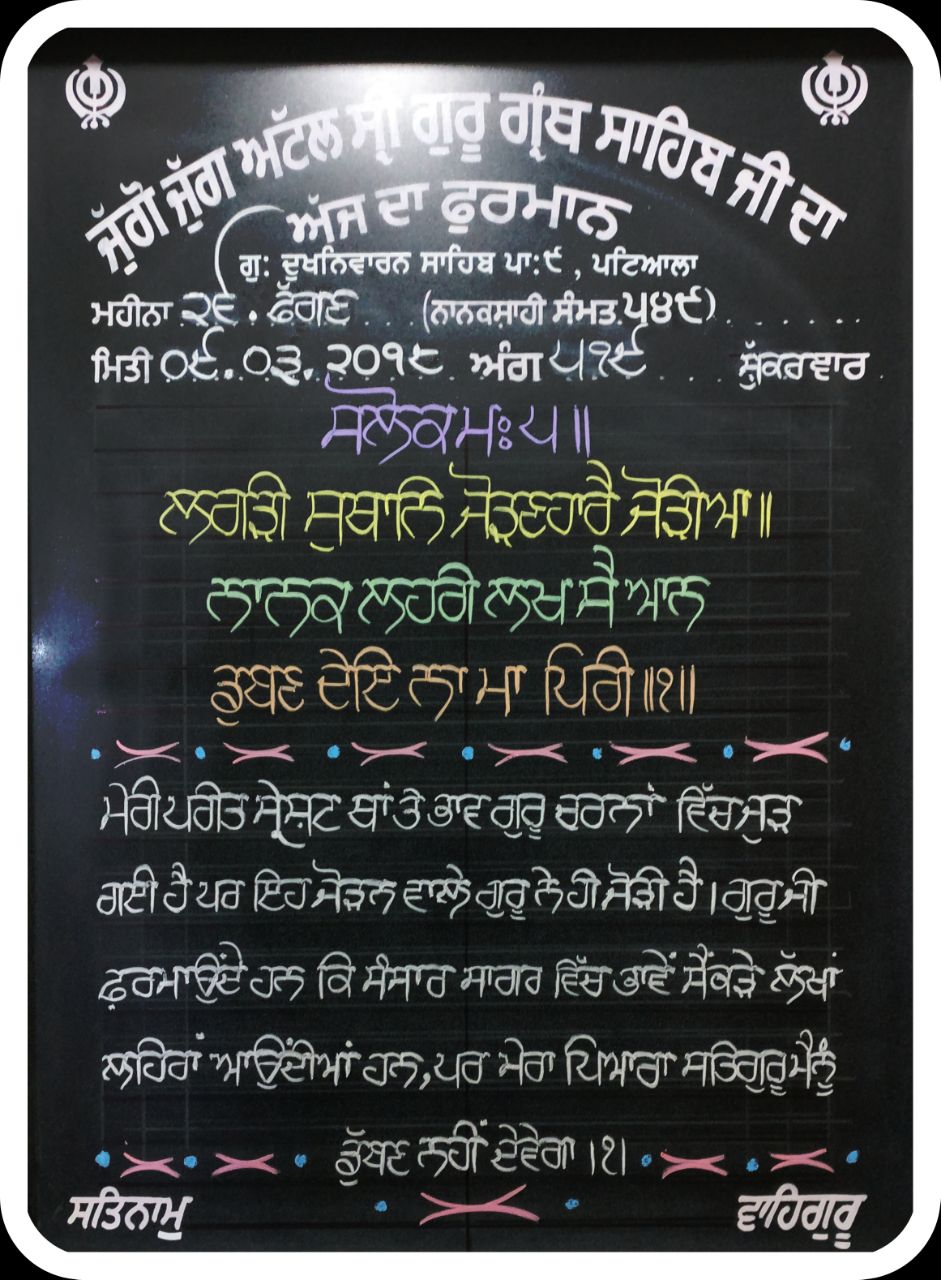 ਜੁੱਗੋ ਜੁੱਗ ਅੱਟਲ ਸ੍ਰੀ ਗੁਰੂ ਗ੍ਰੰਥ ਸਾਹਿਬ ਜੀ ਦਾ
ਅੱਜ ਦਾ ਫੁਰਮਾਨ
ਗੁ: ਦੁਖਨਿਵਾਰਨ ਸਾਹਿਬ ਪਾ:੯ , ਪਟਿਆਲਾ
ਮਹੀਨਾ ੨੬ . ਫੱਗਣ (ਨਾਨਕਸ਼ਾਹੀ ਸੰਮਤ ੫੪੯)
ਮਿਤੀ ੦੯. ੦੩. ੨੦੧੮ ਅੰਗ ੫੧੯ ਸ਼ੁੱਕਰਵਾਰ
ਸਲੋਕ ਮਃ ੫ ॥
ਲਗੜੀ ਸੁਥਾਨਿ ਜੋੜਣਹਾਰੈ ਜੋੜੀਆ ॥
ਨਾਨਕ ਲਹਰੀ ਲਖ ਸੈ ਆਨ
ਡੁਬਣ ਦੇਇ ਨਾ ਮਾ ਪਿਰੀ ॥੧॥
ਮੇਰੀ ਪਰੀਤ ਸ੍ਰੇਸ਼ਟ ਥਾਂ ਤੇ ਭਾਵ ਗੁਰੂ ਚਰਨਾਂ ਵਿੱਚ ਜੁੜ
ਗਈ ਹੈ ਪਰ ਇਹ ਜੋੜਨ ਵਾਲੇ ਗੁਰੂ ਨੇ ਹੀ ਜੋੜੀ ਹੈ । ਗੁਰੂ ਜੀ
ਫ਼ੁਰਮਾਉਂਦੇ ਹਨ ਕਿ ਸੰਸਾਰ ਸਾਗਰ ਵਿੱਚ ਭਾਵੇਂ ਸੈਂਕੜੇ ਲੱਖਾਂ
ਲਹਿਰਾਂ ਆਉਂਦੀਆਂ ਹਨ, ਪਰ ਮੇਰਾ ਪਿਆਰਾ ਸਤਿਗੁਰੂ ਮੈਨੂੰ
ਡੁੱਬਣ ਨਹੀਂ ਦੇਵੇਗਾ ।੧।
ਸਤਿਨਾਮੁ ਵਾਹਿਗੁਰੂ